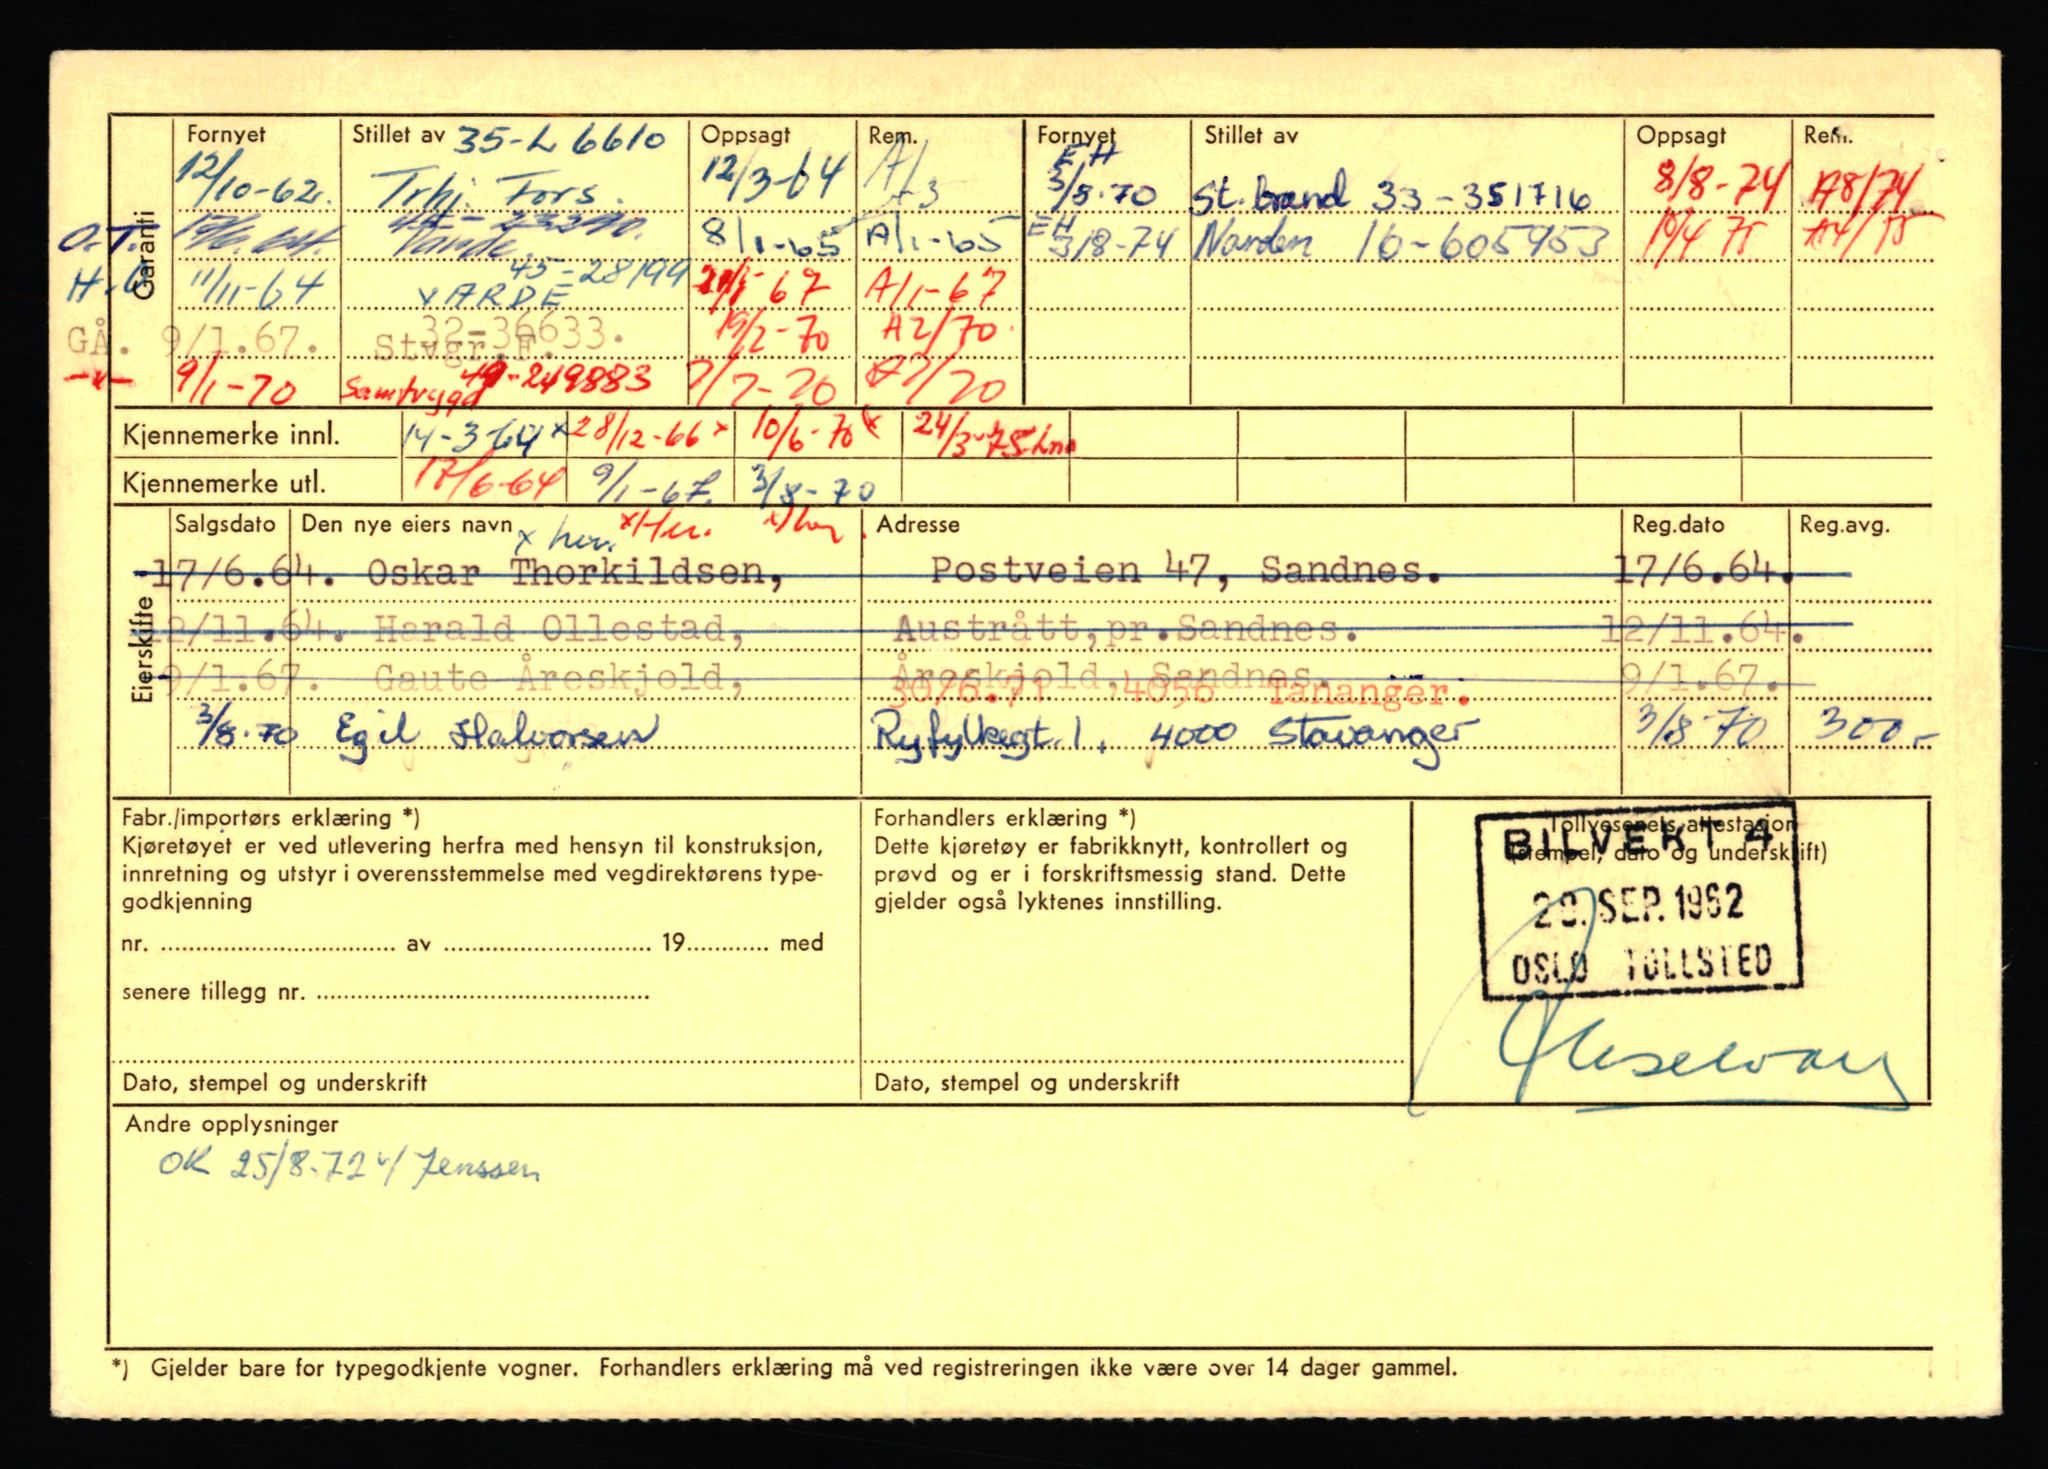 Garanti
Fornyet Stillet av 35-L 6610 Oppsagt Rem. Fornyet Stillet av Oppsagt Rem.
12/10-62. Trhj. Fors. 12/3-64 EH 3/8-70 St.brand 33-351716 8/8-74 A8/74
O.T. Varde 8/1-65 A/1-65 EH 3/8-74 Norden 16-605953 10/4 75 A4/75
11/11-64 VARDE 45-28199 67 A/1-67
GÅ. 9/1.67. Stvgr.F. 32-36633. 19/2-70 A2/70
9/1-70 Samtrygd 49-249883 7/7-70 A7/70
Kjennemerke innl. 14-3-64 x 28/12-66 x 10/6-70 x 24/3-75
Kjennemerke utl. 17/6-64 9/1-67. 3/8-70
Eierskifte
Salgsdato Den nye eiers navn Adresse Reg.dato Reg.avg.
17/6.64. Oskar Thorkildsen, Postveien 47, Sandnes. 17/6.64.
12/11.64. Harald Ollestad, Austrått,pr.Sandnes. 12/11.64.
9/1.67. Gaute Åreskjold, Åreskjold, Sandnes. 9/1.67.
30/6.71 4056 Tananger.
3/8-70 Egil Halvorsen Ryfylkegt. 1, 4000 Stavanger 3/8-70 300,-
Fabr./importørs erklæring *)
Kjøretøyet er ved utlevering herfra med hensyn til konstruksjon,
innretning og utstyr i overensstemmelse med vegdirektørens type-
godkjenning
nr. av 19 med
senere tillegg nr.
Dato, stempel og underskrift
Forhandlers erklæring *)
Dette kjøretøy er fabrikknytt, kontrollert og
prøvd og er i forskriftsmessig stand. Dette
gjelder også lyktenes innstilling.
Dato, stempel og underskrift
Tollvesenets attestasjon
(stempel, dato og underskrift)
BILVEKT 4
20. SEP. 1962
OSLO TOLLSTED
Andre opplysninger
OK 25/8-72 v/ Jenssen
*) Gjelder bare for typegodkjente vogner. Forhandlers erklæring må ved registreringen ikke være over 14 dager gammel.